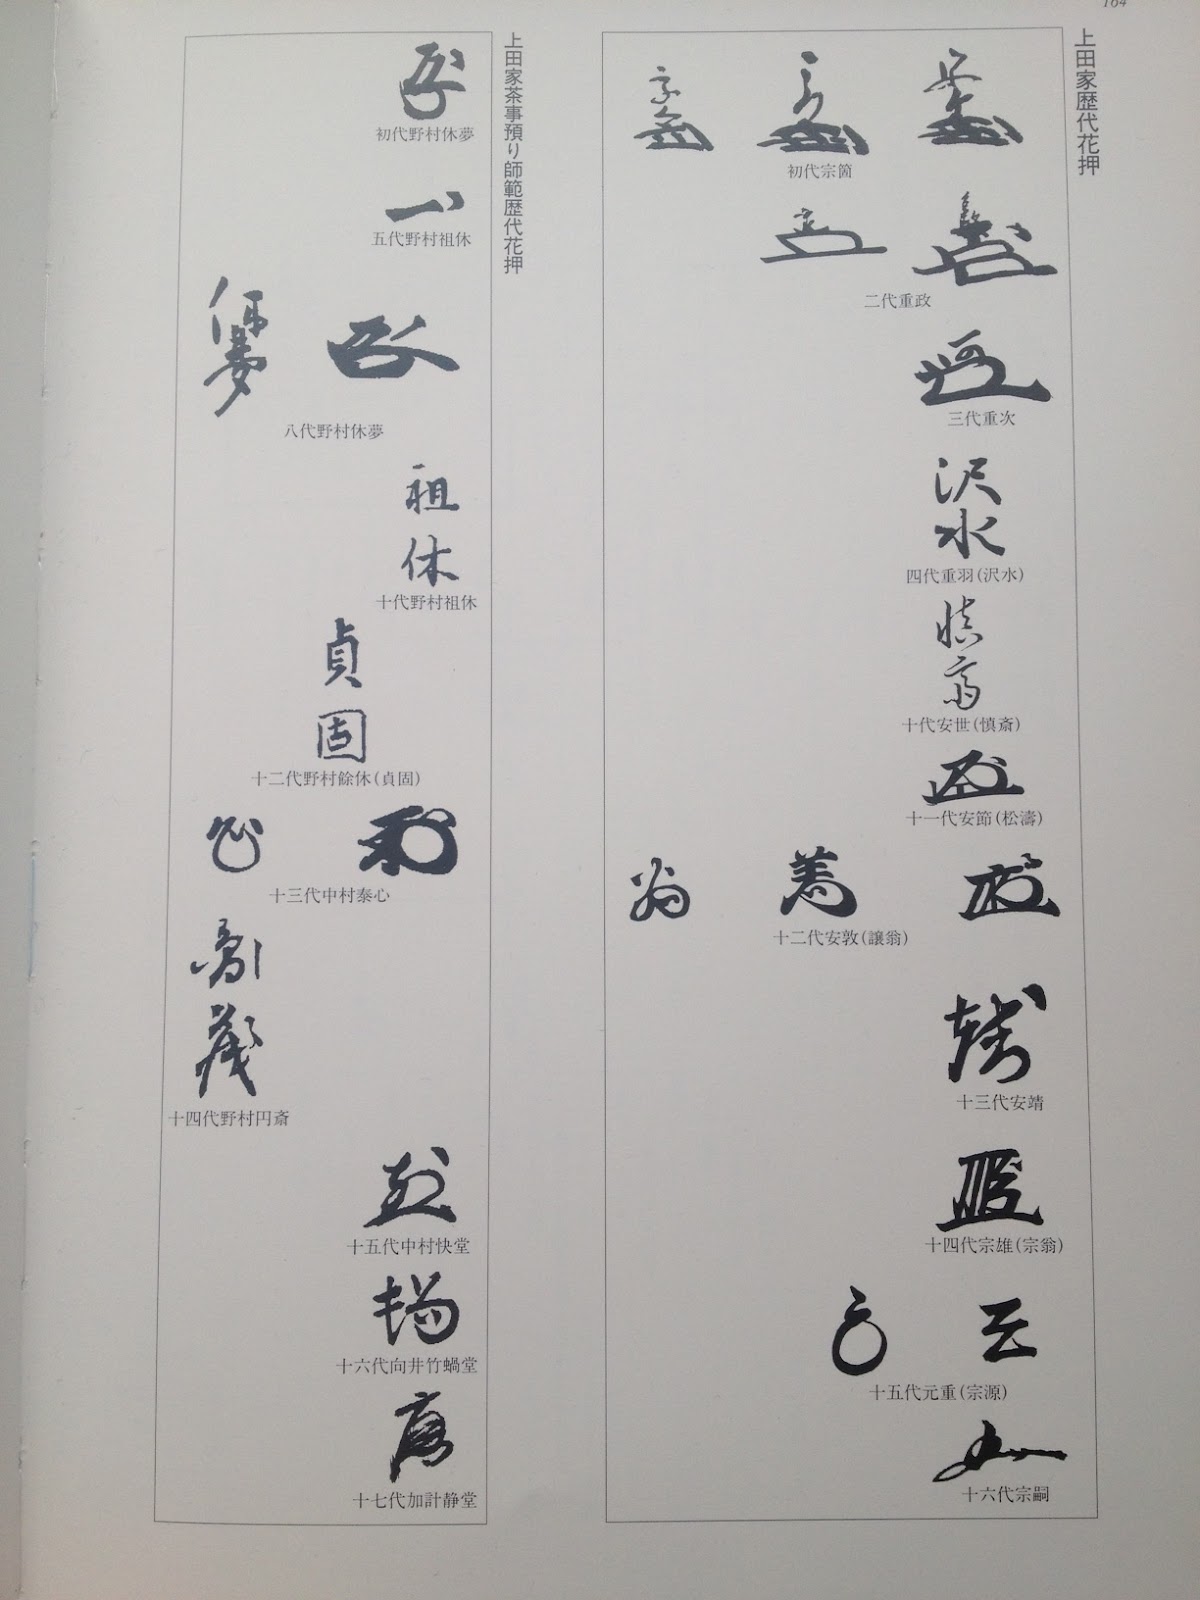 164
上田家歴代花押
初代宗箇
二代重政
三代重次
沢
水
四代重羽(沢水)
慎
斎
十代安世(慎斎)
十一代安節(松濤)
翁
十二代安敦(譲翁)
十三代安靖
十四代宗雄(宗翁)
十五代元重(宗源)
十六代宗嗣
上田家茶事預り師範歴代花押
初代野村休夢
五代野村祖休
八代野村休夢
祖
休
十代野村祖休
貞
固
十二代野村餘休(貞固)
十三代中村泰心
十四代野村円斎
十五代中村快堂
十六代向井竹蝸堂
十七代加計静堂